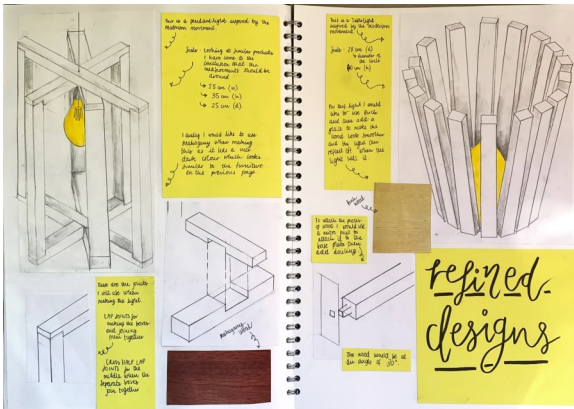 This is a pendant light inspired by the
modernism movement.
Scale: Looking at similar products
I have come to the
conclusion that the
measurements should be
around
↳ 25 cm (w)
↳ 35 cm (h)
↳ 25 cm (d).
Ideally I would like to use
Mahogany when making
this as it has a nice
dark colour which looks
similar to the furniture
on the previous page.
These are the joints
I will use when
making the light.
LAP JOINTS for
making the boxes
and joining
them together
CROSS HALF LAP
JOINTS for the
middle where the
separate boxes
join together
Mahogany
wood
This is a table light
inspired by the modernism
movement.
Scale: 28 cm (d)
↳ diameter of
the circle
cm (h)
For this light I would
like to use Birch
and then add a
glaze to make the
wood look smoother
and the light can
reflect off when the
light hits it
Birch
wood
To attach the pieces
of wood I would use
a
attach it to the
base plate then
add
The wood would be at
an angle of 20°.
refined
designs